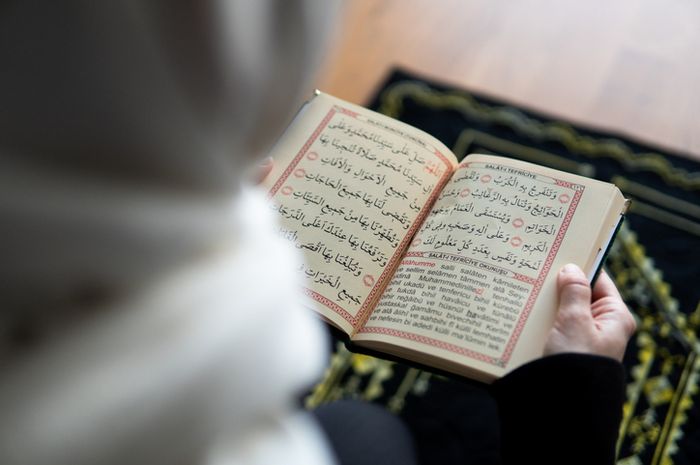 اَللّٰهُمَّ
صَلِّ عَلَى سَيِّدِنَا مُحَمَّدٍ وَعَلَى
سَيِّدِنَا مُحَمَّدٍ صَلَاةً تُنْجِينَا بِهَا
مِنْ جَمِيعِ الْاَحْوَالِ وَالْاٰفَاتِ
وَتَقْضِى لَنَا بِهَا جَمِيعَ الْحَاجَاتِ
وَتُطَهِّرُنَا بِهَا مِنْ جَمِيعِ السَّيِّئَاتِ
وَتَرْفَعُنَا بِهَا عِنْدَكَ اَعْلَى الدَّرَجَاتِ
وَتُبَلِّغُنَا بِهَا اَقْصَى
جَمِيعِ الْخَيْرَاتِ
SALÂT-I TEFRİCİYE
وَتَنْفَرِجُ بِهِ الْكُرَبُ وَتُقْضَى
الْحَوَائِجُ وَتُنَالُ بِهِ الرَّغَائِبُ
الْخَوَاتِيمِ وَيُسْتَسْقَى الْغَمَامُ
الْكَرِيمِ وَعَلَى اٰلِهِ وَصَحْبِهِ فِى كُلِّ
لَمْحَةٍ وَنَفَسٍ بِعَدَدِ كُلِّ مَعْلُومٍ لَكَ
SALÂT-I TEFRİCİYE OKUNUŞU
Allâhümme salli salâten kâmileten
ve sellim selâmen tâmmen alâ Sey-
Muhammedinillezi tenhallü
ukadü ve tenfericu bihil kürebü
ve tukdâ bihil havâicu ve tünâlü
bihir reğâibü ve hüsnül havâtimi ve
yusteskal ğamâmu bivechihil Kerîm
ve alâ âlihî ve sahbihî fî külli lemhatin
ve nefesin bi adedi külli ma'lûmin lek.